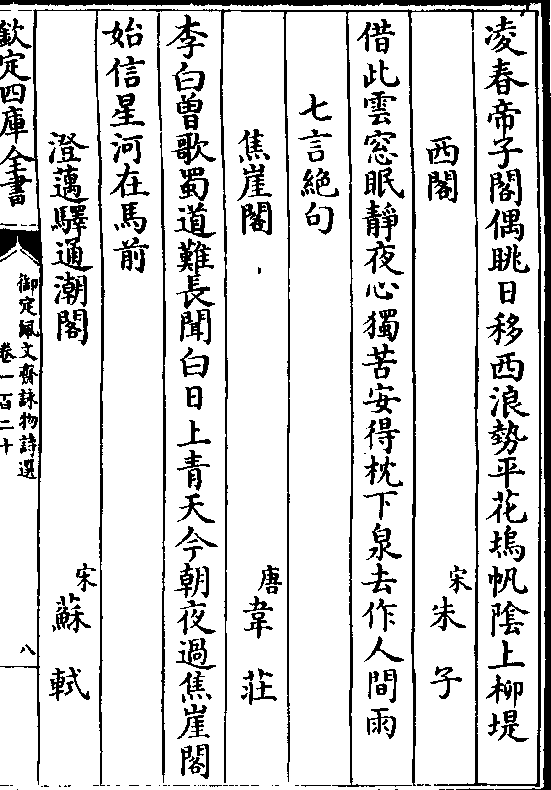 凌春帝子閣偶眺日移西浪勢平花塢帆陰上柳堤
西閣 宋朱子
借此雲窓眠靜夜心獨苦安得枕下泉去作人間雨
七言絶句
焦崖閣 唐韋莊
李白曾歌蜀道難長聞白日上青天今朝夜過焦崖閣
始信星河在馬前
澄邁驛通潮閣 宋蘇軾
欽定四庫全書
御定佩文齋詠物詩選
卷一百二十
八